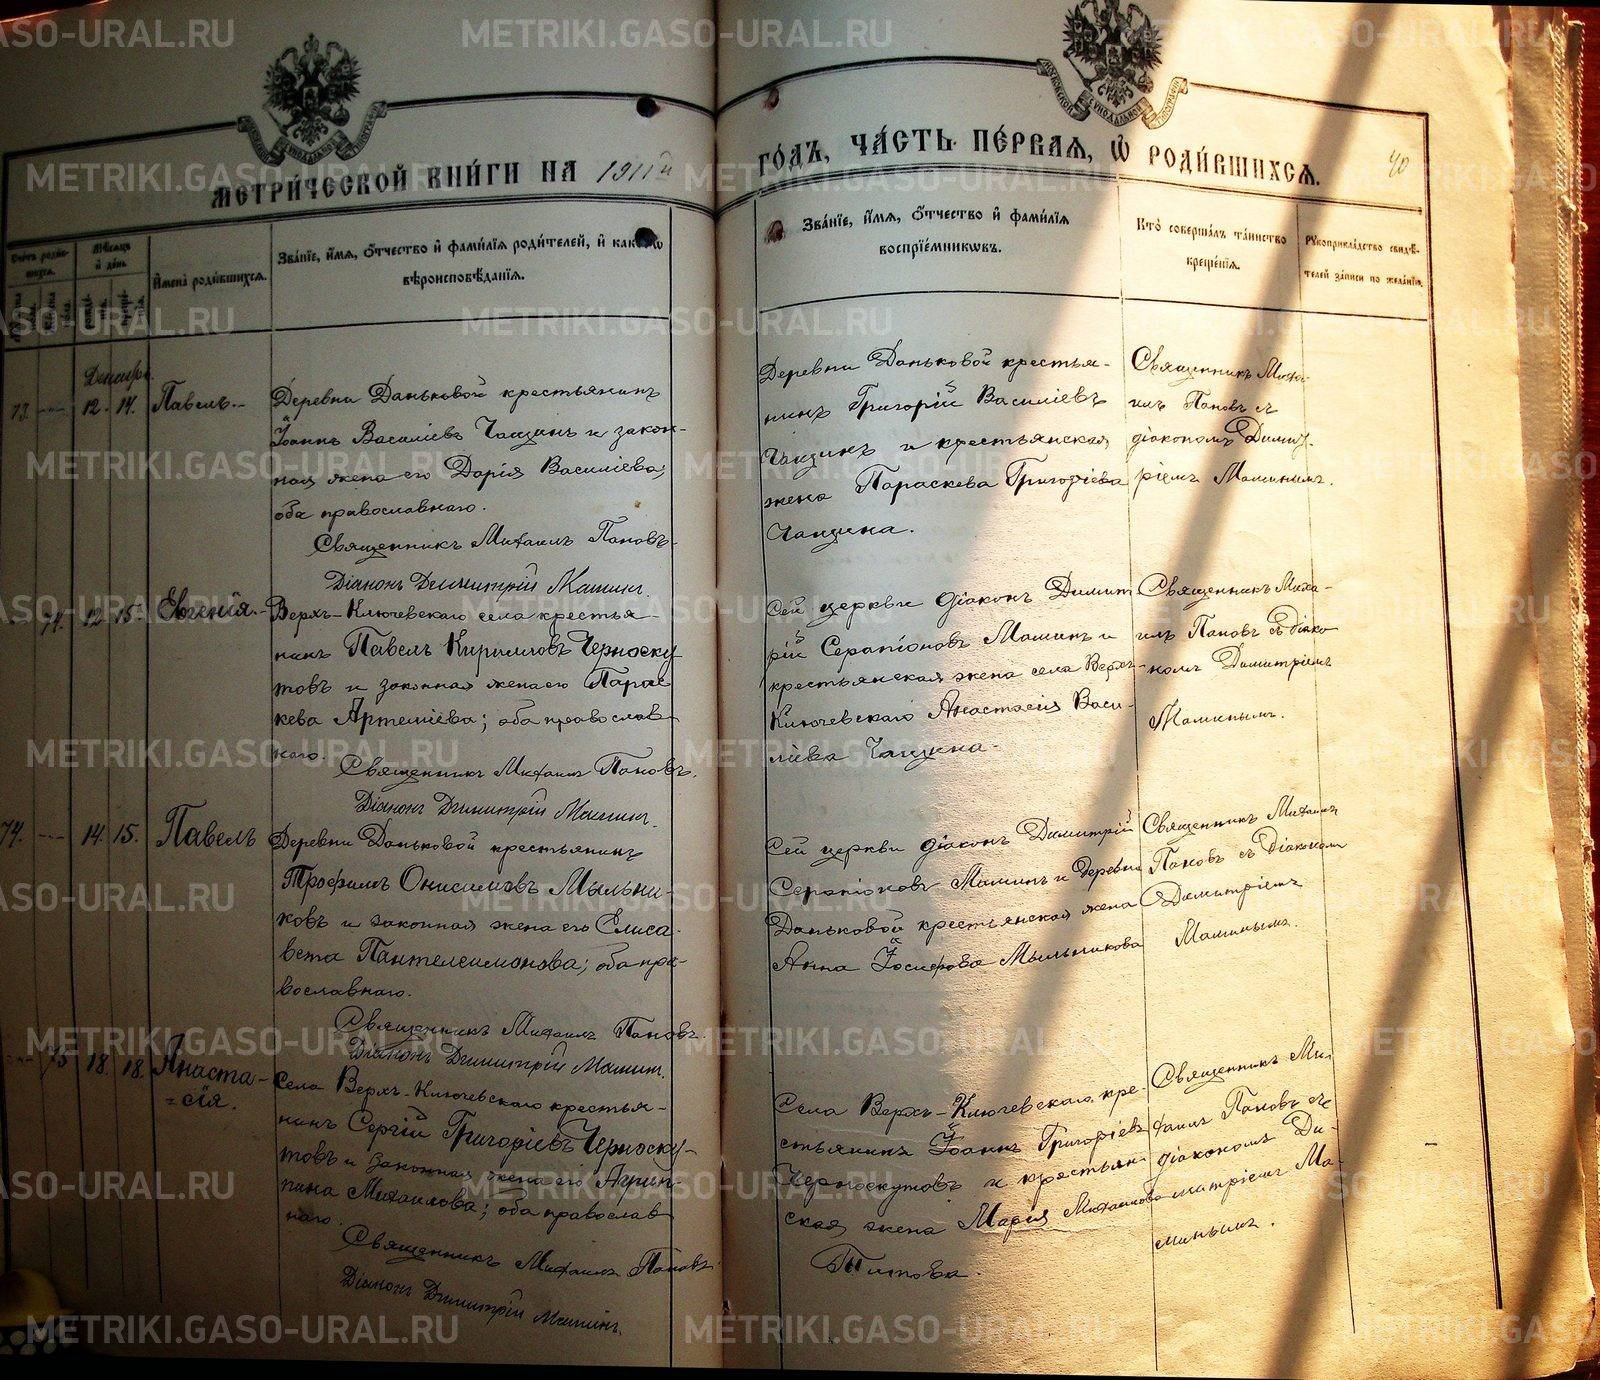 МЕТРИ́ЧЕСКОЙ КНИ́ГИ НА 1911й ГО́ДЪ, ЧА́СТЬ ПЕ́РВАЯ, Ѡ РОДИ́ВШИХСЯ.
40
Мѣсяцъ и день
Имена родившихся.
Зва́ніе, и́мя, о́тчество и фами́лія роди́телей, и какого вѣроисповѣ́данія.
Зва́ніе, и́мя, о́тчество и фами́лія воспріе́мниковъ.
Кто̀ соверша́лъ та́инство креще́нія.
Рукоприкла́дство свидѣ́телей за́писи по жела́нію.
Декабрь
73. --- 12. 14. Павелъ.
Деревни Даньковой крестьянинъ
Іоаннъ Василіевъ Чащинъ и закон-
ная жена его Дарія Василіева;
оба православнаго.
Священникъ Михаилъ Пановъ
Діаконъ Димитрій Машинъ.
Деревни Даньковой крестья-
нинъ Григорій Василіевъ
Чащинъ и крестьянская
жена Параскева Григоріева
Чащина.
Священникъ Миха-
илъ Пановъ съ
діакономъ Димит-
ріемъ Машинымъ.
74. 12 15. Евгенія.
Верхъ-Ключевскаго села крестья-
нинъ Павелъ Кирилловъ Черноску
товъ и законная жена его Парас
кева Артеміева; оба православ
наго.
Священникъ Михаилъ Пановъ.
Діаконъ Димитрій Машинъ.
Сей церкви діаконъ Димит
рій Серапіоновъ Машинъ и
крестьянская жена села Верхъ-
Ключевскаго Анастасія Васи-
ліева Чащина.
Священникъ Миха-
илъ Пановъ съ діако
номъ Димитріемъ
Машинымъ.
74. --- 14. 15. Павелъ
Деревни Даньковой крестьянинъ
Трофимъ Онисимовъ Мыльни-
ковъ и законная жена его Елиса-
вета Пантелеимонова; оба пра-
вославнаго.
Священникъ Михаилъ Пановъ.
Діаконъ Димитрій Машинъ.
Сей церкви діаконъ Димитрій
Серапіоновъ Машинъ и деревни
Даньковой крестьянская жена
Анна Іосифова Мыльникова
Священникъ Михаилъ
Пановъ съ діакономъ
Димитріемъ
Машинымъ.
--- 75 18. 18. Анаста-
=сія.
Села Верхъ-Ключевскаго крестья-
нинъ Сергій Григоріевъ Черноску-
товъ и законная жена его Агрип-
пина Михаилова; оба православ
наго.
Священникъ Михаилъ Пановъ
Діаконъ Димитрій Машинъ.
Села Верхъ-Ключевскаго кре-
стьянинъ Іоаннъ Григоріевъ
Черноскутовъ и крестьян-
ская жена Марія Михаилова
Титова.
Священникъ Ми-
хаилъ Пановъ съ
діакономъ Ди-
митріемъ Ма-
шинымъ.
METRIKI.GASO-URAL.RU